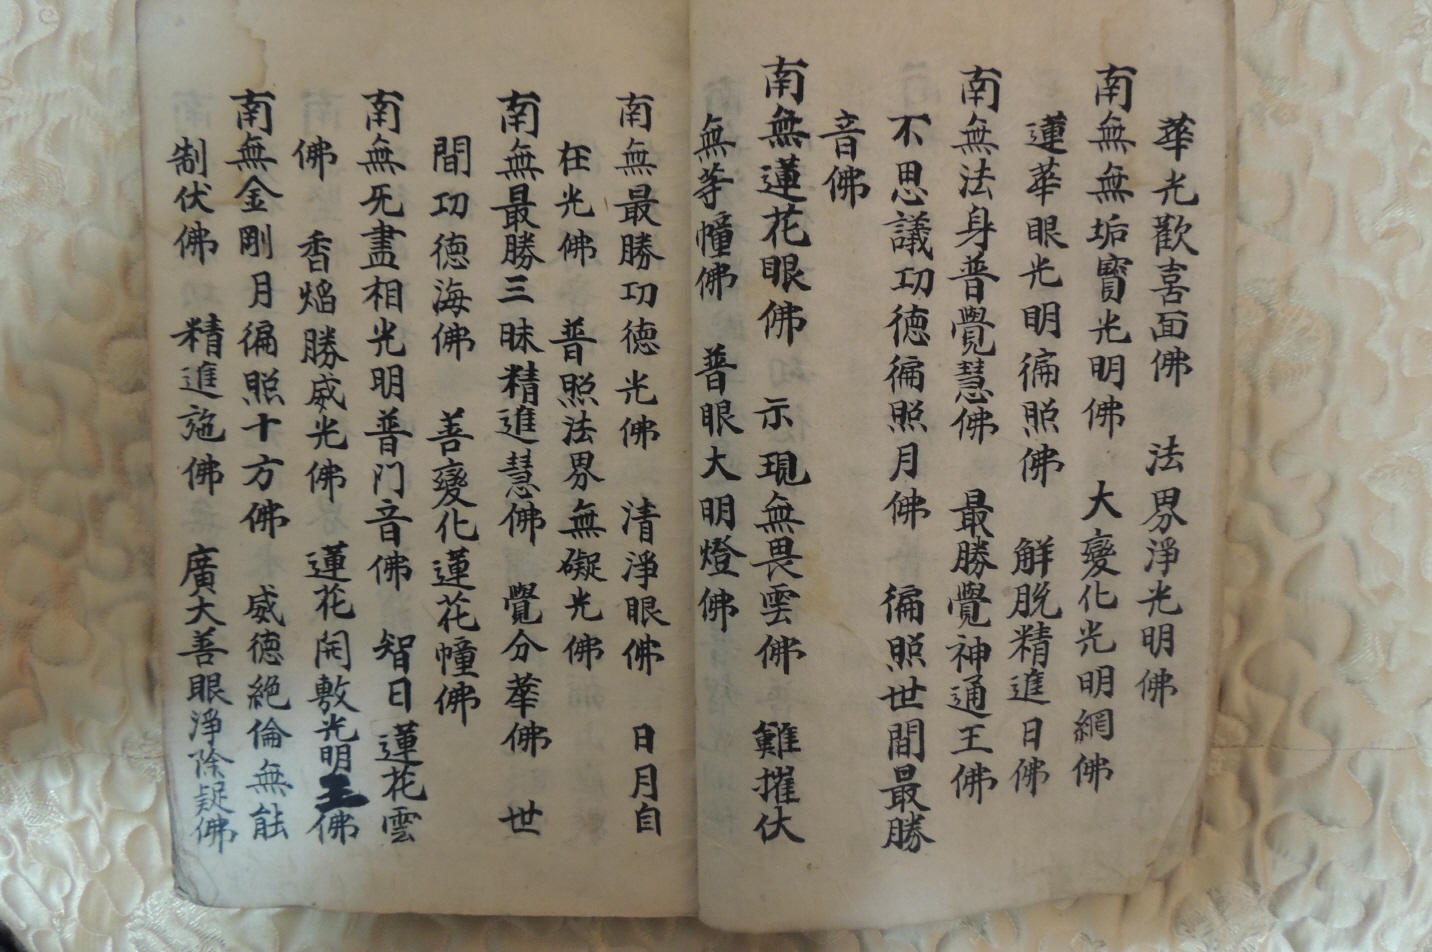 華光歡喜面佛　法界淨光明佛
南無無垢寶光明佛　大變化光明網佛
蓮華眼光明徧照佛　解脫精進日佛
南無法身普覺慧佛　最勝覺神通王佛
不思議功德徧照月佛　徧照世間最勝
音佛
南無蓮花眼佛　示現無畏雲佛　難摧伏
無等幢佛　普眼大明燈佛
南無最勝功德光佛　清淨眼佛　日月自
在光佛　普照法界無礙光佛
南無最勝三昧精進慧佛　覺分華佛　世
間功德海佛　善變化蓮花幢佛
南無无盡相光明普门音佛　智日蓮花雲
佛　香焰勝威光佛　蓮花開敷光明王佛
南無金剛月徧照十方佛　威德絕倫無能
制伏佛　精進施佛　廣大善眼淨除疑佛